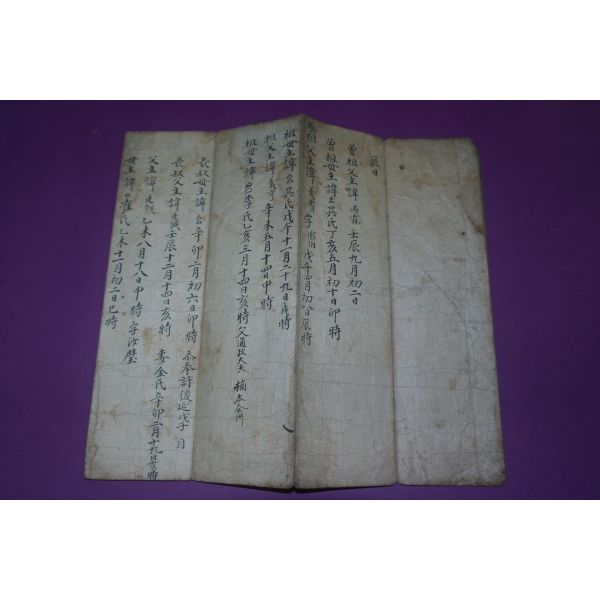 辰日
曾祖父主諱 壬辰九月初二日
曾祖母主諱 吳氏丁亥五月初十日卯時
祖父主諱 字 戊午四月初八日辰時
祖母主諱 吳氏戊午十一月二十九日 時
祖父主諱義亨 辛未五月十四日申時
祖母主諱 李氏乙亥三月十四日亥時 父通政大夫 楠 本全州
長叔母主諱 辛卯二月初六日卯時 奉許後 戊子 月
長叔父主諱 壬辰十二月十四日亥時 妻金氏辛卯二月十九日亥時
父主諱 乙未八月十八日申時 字汝璧
母主諱 崔氏乙未十一月初二日巳時